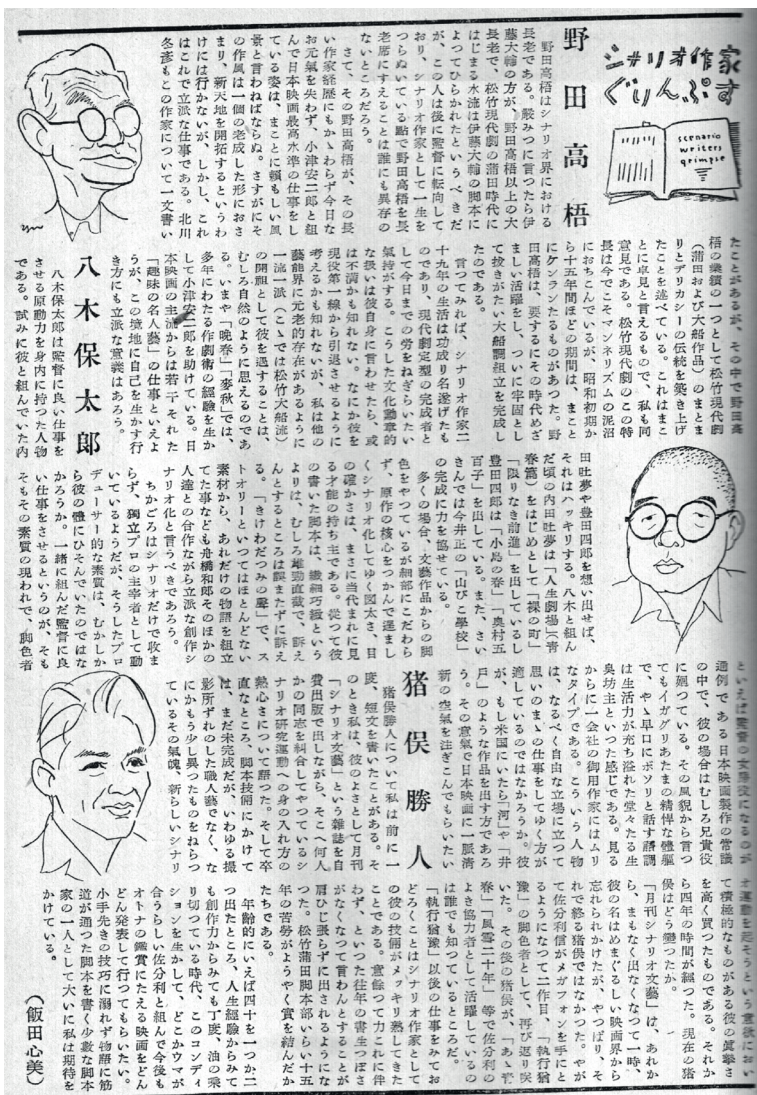 シナリオ作家
ぐりんぷす
scenario
writers
grimpse
野田高梧
野田高梧はシナリオ界における
長老である。嚴みつに言つたら伊
藤大輔の方が、野田高梧以上の大
長老で、松竹現代劇の蒲田時代に
はじまる水流は伊藤大輔の脚本に
よつてひらかれたというべきだ
が、この人は後に監督に轉向して
おり、シナリオ作家として一生を
つらぬいている點で野田高梧を長
老席にすえることは誰にも異存の
ないところだろう。
さて、その野田高梧が、その長
い作家経歴にもかゝわらず今日な
お元氣を失わず、小津安二郎と組
んで日本映画最高水準の仕事をし
ている姿は、まことに頼もしい風
景と言わねばならぬ。さすがにそ
の作風は一個の老成した形におさ
まり、新天地を開拓するというわ
けには行かないが、しかし、これ
はこれで立派な仕事である。北川
冬彦もこの作家について一文書い
たことがあるが、その中で野田高
梧の業績の一つとして松竹現代劇
（蒲田および大船作品）のまとま
りとデリカシーの伝統を築き上げ
たことを述べている。これはまこ
とに卓見と言えるもので、私も同
意見である。松竹現代劇のこの特
長は今でこそマンネリズムの泥沼
におちこんでいるが、昭和初期か
ら十五年間ほどの期間は、まこと
にケンランたるものがあつた。野
田高梧は、要するにその時代めざ
ましい活躍をし、ついに牢固とし
て抜きがたい大船調組立を完成し
たのである。
言つてみれば、シナリオ作家二
十九年の生活は功成り名遂げたも
のであり、現代劇定型の完成者と
して今日までの労をねぎらいたい
氣持がする。こうした文化勲章的
な扱いは彼自身に言わせたら、或
は不満かも知れない。なにか彼を
現役第一線から引退させるように
考えるかも知れないが、私は他の
藝能界に元老的存在があるように
一流一派（こゝでは松竹大船流）
の開眼として彼を遇することは、
むしろ自然のように思えるのであ
る。いまや「晩春」「麥秋」では、
多年にわたる作劇術の經驗を生か
して小津安二郎を助けている。日
本映画の主流からは若干それた
「趣味の名人藝」の仕事といえよ
うが、この境地に自己を生かす行
き方にも立派な意義はあろう。
八木保太郎
八木保太郎は監督に良い仕事を
させる原動力を身内に持つた人物
である。試みに彼と組んでいた内
田吐夢や豊田四郎を想い出せば、
それはハッキリする。八木と組ん
だ頃の内田吐夢は「人生劇場（青
春篇）をはじめとして「裸の町」
「限りなき前進」を出しているし
豊田四郎は「小島の春」「奥村五
百子」を出している。また、さい
きんでは今井正の「山びこ學校」
の完成に力を協せている。
多くの場合、文藝作品からの脚
色をやつているが細部にこだわら
ず、原作の核心をつかんで逞まし
くシナリオ化してゆく図太さ、目
の確かさは、まさに当代まれに見
る才能の持ち主である。從つて彼
の書いた脚本は、繊細巧緻という
よりは、むしろ雄勁直截で、訴え
んとするところは誤またずに訴え
る。「きけわだつみの聲」で、ス
トオリーといつてはほとんどない
素材から、あれだけの物語を組立
てた事なども舟橋和郎そのほかの
人達との合作ながら立派な創作シ
ナリオ化と言うべきであろう。
ちかごろはシナリオだけで收ま
らず、獨立プロの主宰者として動
いているようだが、そうしたプロ
デューサー的な素質は、むかしか
ら彼の體にひそんでいたのではな
かろうか。一緒に組んだ監督に良
い仕事をさせるというのが、そも
そもその素質の現われで、脚色者
といえば監督の女房役になるのが
通例である日本映画製作の常識
の中で、彼の場合はむしろ兄貴役
に廻つている。その風貌から言つ
てもイガグリあたまの精悍な體軀
で、やゝ早口にボソリと話す語調
は生活力が充ち溢れた堂々たる生
臭坊主といつた感じである。見る
からに一会社の御用作家にはムリ
なタイプである。こういう人物
は、なるべく自由な立場に立つて
思いのまゝの仕事をしてゆく方が
適しているのではなかろうか。彼
が、もし米国にいたら「河」や「井
戸」のような作品を出す方であろ
う。その意氣で日本映画に一脈清
新の空氣を注ぎこんでもらいたい
猪俣勝人
猪俣勝人について私は前に一
度、短文を書いたことがある。そ
のとき私は、彼のよさとして月刊
「シナリオ文藝」という雑誌を自
費出版で出しながら、そこへ何人
かの同志を糾合してやつているシ
ナリオ研究運動への身の入れ方の
熱心さについて語つた。そして卒
直なところ、脚本技術にかけて
は、まだ未完成だが、いわゆる撮
影所ずれのした職人藝でなく、な
にかもう少し異つたものをねらつ
ているその氣魄、新らしいシナリ
オ運動を起そうという意欲におい
て積極的なものがある彼の眞摯さ
を高く買つたものである。それか
ら四年の時間が經つた。現在の猪
俣はどう變つたか。
「月刊シナリオ文藝」は、あれか
ら、まもなく出なくなつて一時、
彼の名はめまぐるしい映画界から
忘れられかけたが、やつぱり、そ
れで終る猪俣ではなかつた。やが
て佐分利信がメガフォンを手にと
るようになつて二作目、「執行猶
豫」の脚色者として、再び返り咲
いた。その後の猪俣が、「あゝ青
春」「風雪二十年」等で佐分利の
よき協力者として活躍しているの
は誰でも知つているところだ。
「執行猶豫」以後の仕事をみてお
どろくことはシナリオ作家として
の彼の技倆がメッキリ熟してきた
ことである。意餘つて力これに伴
わず、といつた往年の書生つぽさ
がなくなつて言わんとすることが
肩ひじ張らずに出されるようにな
つた。松竹蒲田脚本部いらい十五
年の苦勞がようやく実を結んだか
たちである。
年齢的にいえば四十を一つか二
つ出たところ、人生經驗からみて
も創作力からみても丁度、油の乘
り切つている時代、このコンディ
ションを生かして、どこかウマが
合うらしい佐分利と組んで今後も
オトナの鑑賞にたえる映画をどん
どん発表して行つてもらいたい。
小手先きの技巧に溺れず物語に筋
道が通つた脚本を書く少數な脚本
家の一人として大いに私は期待を
かけている。
（飯田心美）